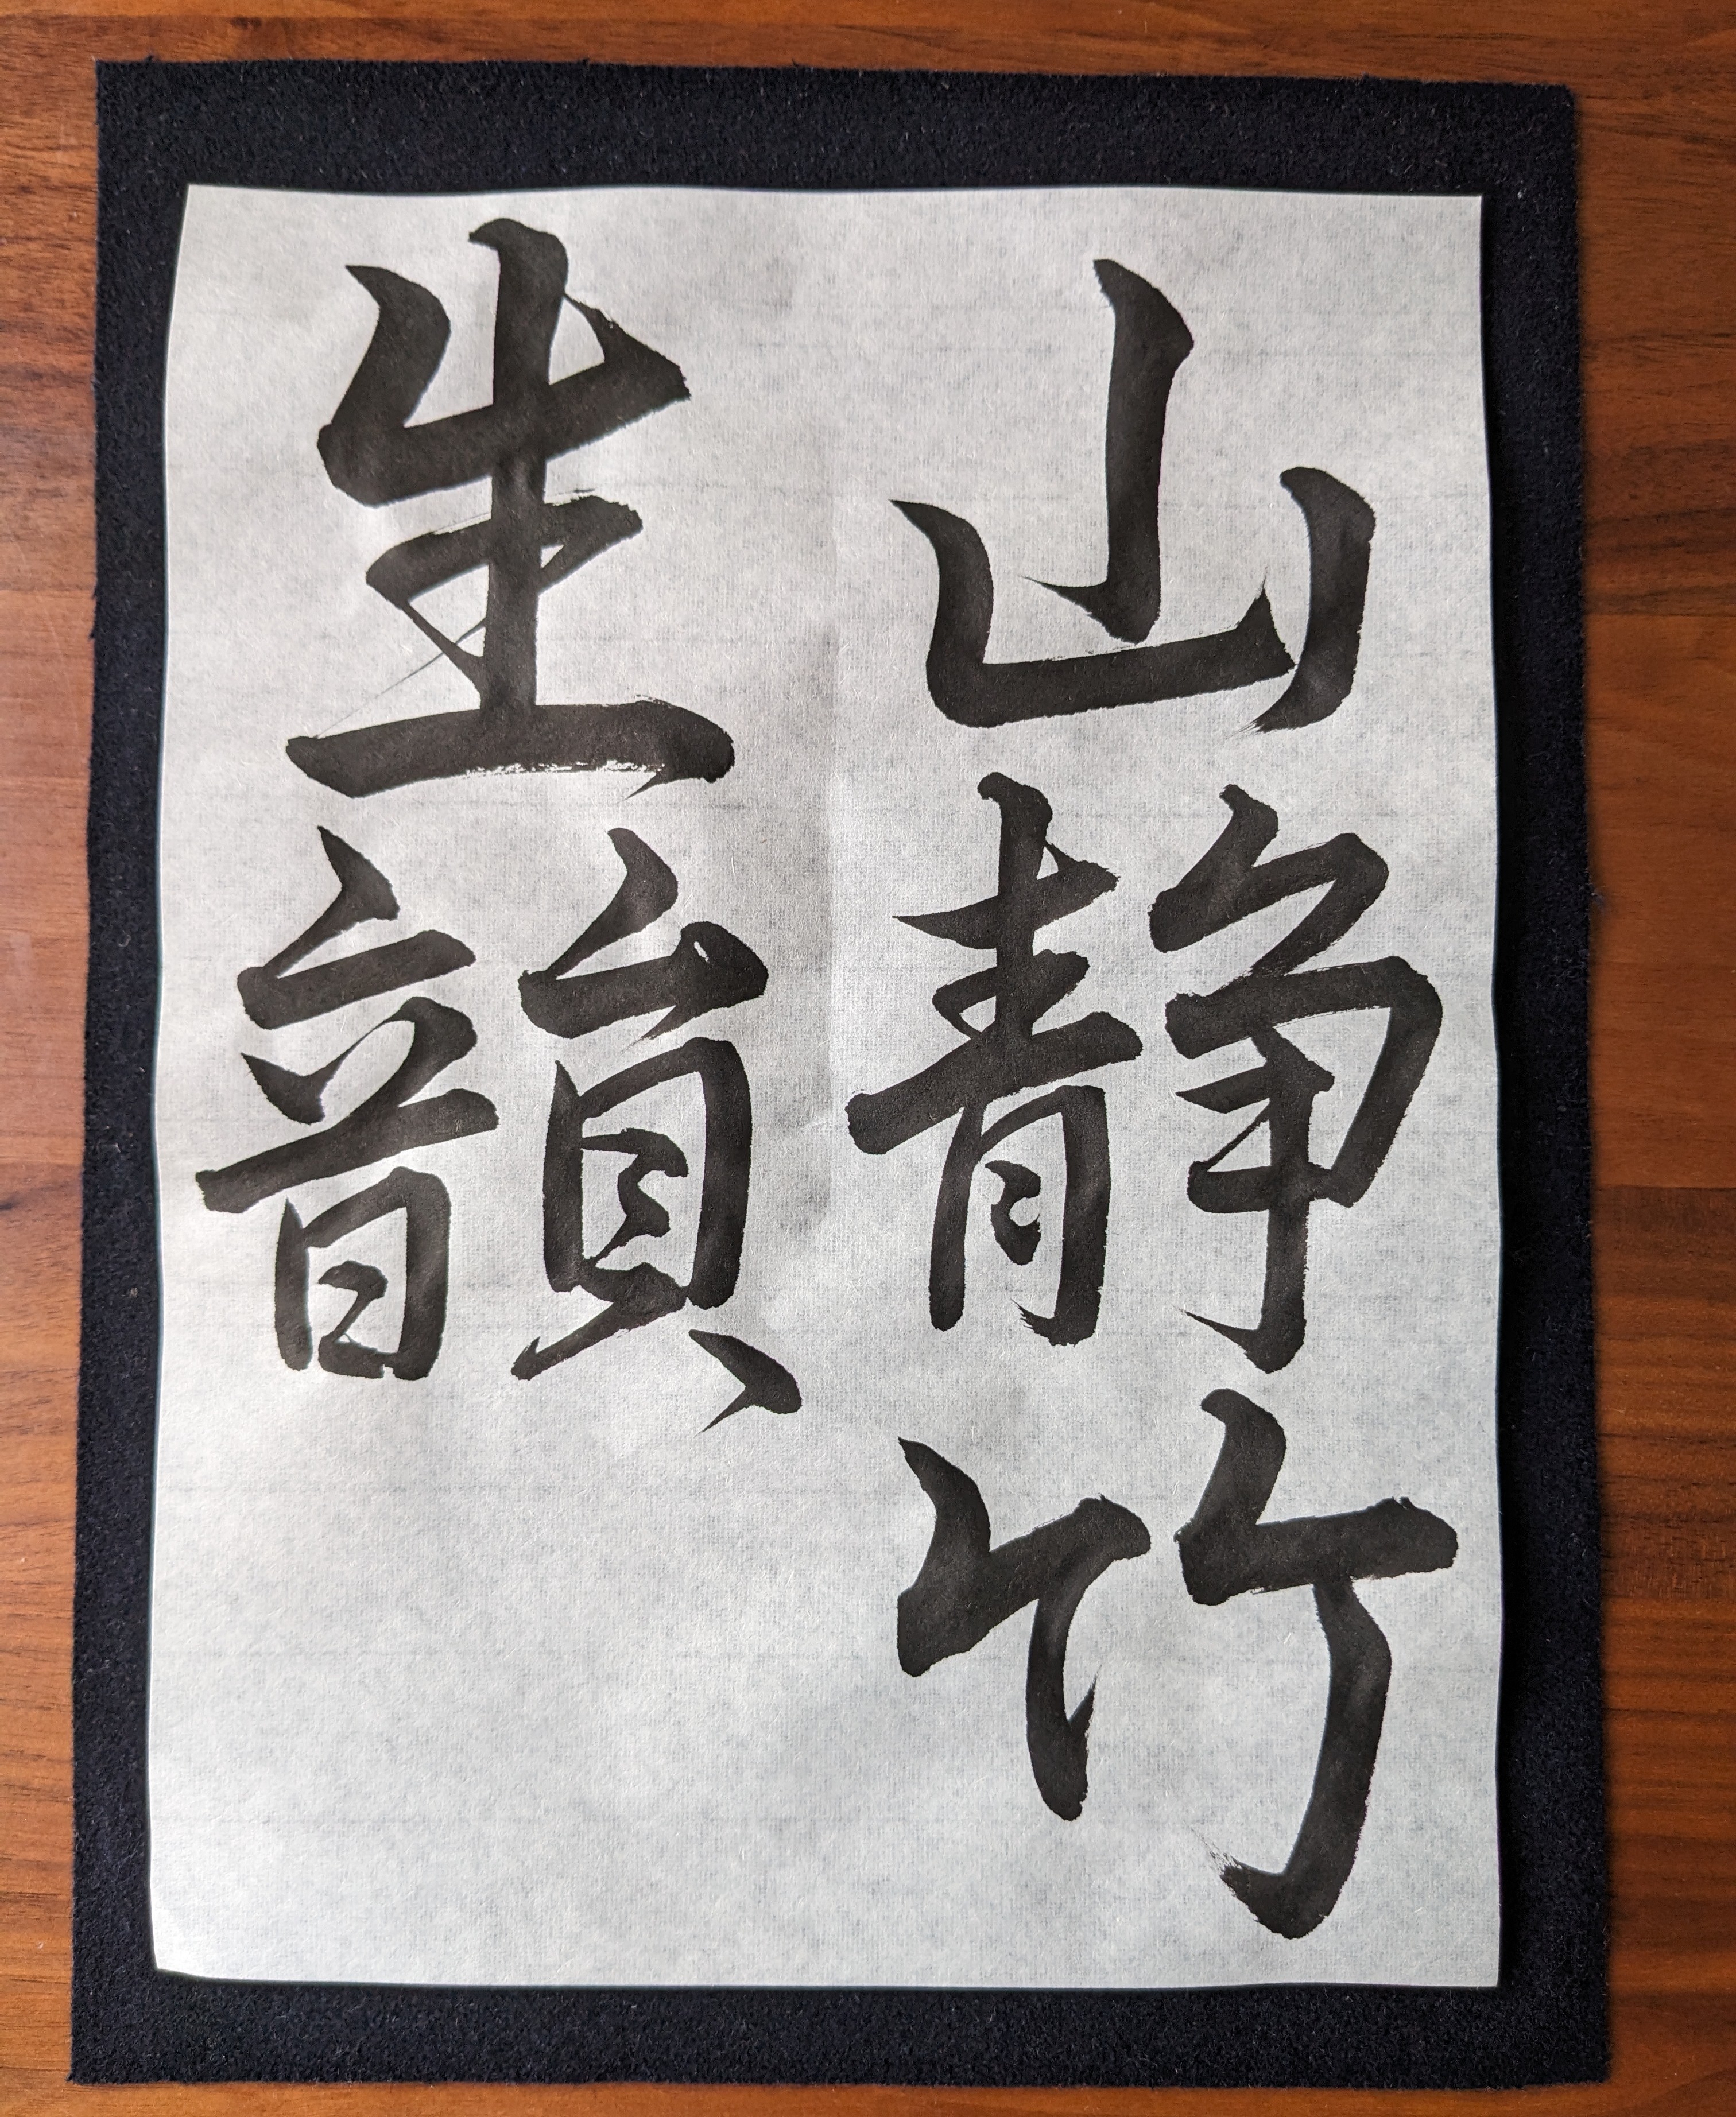 山静竹
生韻